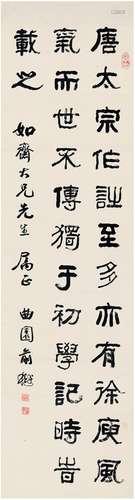 唐太宗作註至多亦有徐庾風
氣而世不傳獨于初學記時旹
載之
如齋大兄先生属正
曲園俞樾